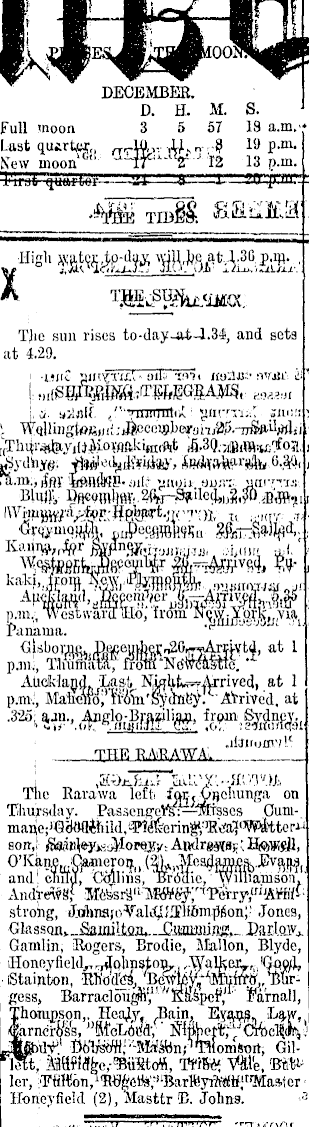 PHASES THE MOON.
DECEMBER.
D. H. M. S.
Full moon 3 5 57 18 a.m.
Last quarter 10 11 8 19 p.m.
New moon 17 2 12 13 p.m.
First quarter 24 8 1 20 p.m.
THE TIDES.
High water to-day will be at 1.36 p.m.
THE SUN.
The sun rises to-day at 1.34, and sets
at 4.29.
SHIPPING TELEGRAMS.
Wellington, December 25.—Sailed,
Thursday, Moeraki, at 5.30 p.m., for
Sydney. Sailed, Friday, Indrabarah, 6.30
a.m., for London.
Bluff, December 26.—Sailed, 2.30 p.m.,
Wimmera, for Hobart.
Greymouth, December 26.—Sailed,
Kanna, for Sydney.
Westport, December 26.—Arrived, Pu-
kaki, from New Plymouth.
Auckland, December 6.—Arrived, 5.35
p.m., Westward Ho, from New York via
Panama.
Gisborne, December 26.—Arrivtd, at 1
p.m., Thumata, from Newcastle.
Auckland, Last Night.—Arrived, at 1
p.m., Maheno, from Sydney. Arrived, at
.325 a.m., Anglo-Brazilian, from Sydney.
THE RARAWA.
The Rarawa left for Onehunga on
Thursday. Passengers:—Misses Cum-
mane, Goodchild, Pickering, Rea, Watter-
son, Morey, Andrews, Howell,
O'Kane, Cameron (2), Mesdames Evans
and child, Collins, Brodie, Williamson,
Andrews, Messrs Morey, Perry, Arm-
strong, Johns, Vald, Thompson, Jones,
Glasson, Samilton, Cumming, Darlow,
Gamlin, Rogers, Brodie, Mallon, Blyde,
Honeyfield, Johnston, Walker, Good,
Stainton, Rhodes, Bewley, Munro, Bur-
gess, Barraclough, Kasper, Farnall,
Thompson, Healy, Bain, Evans, Law,
Carncross, McLeod, Nippert, Crocker,
Moody, Dobson, Mason, Thomson, Gil-
lett, Aldridge, Buxton, Tribe, Vale, But-
ler, Fulton, Rogers, Barleyman, Master
Honeyfield (2), Masttr B. Johns.